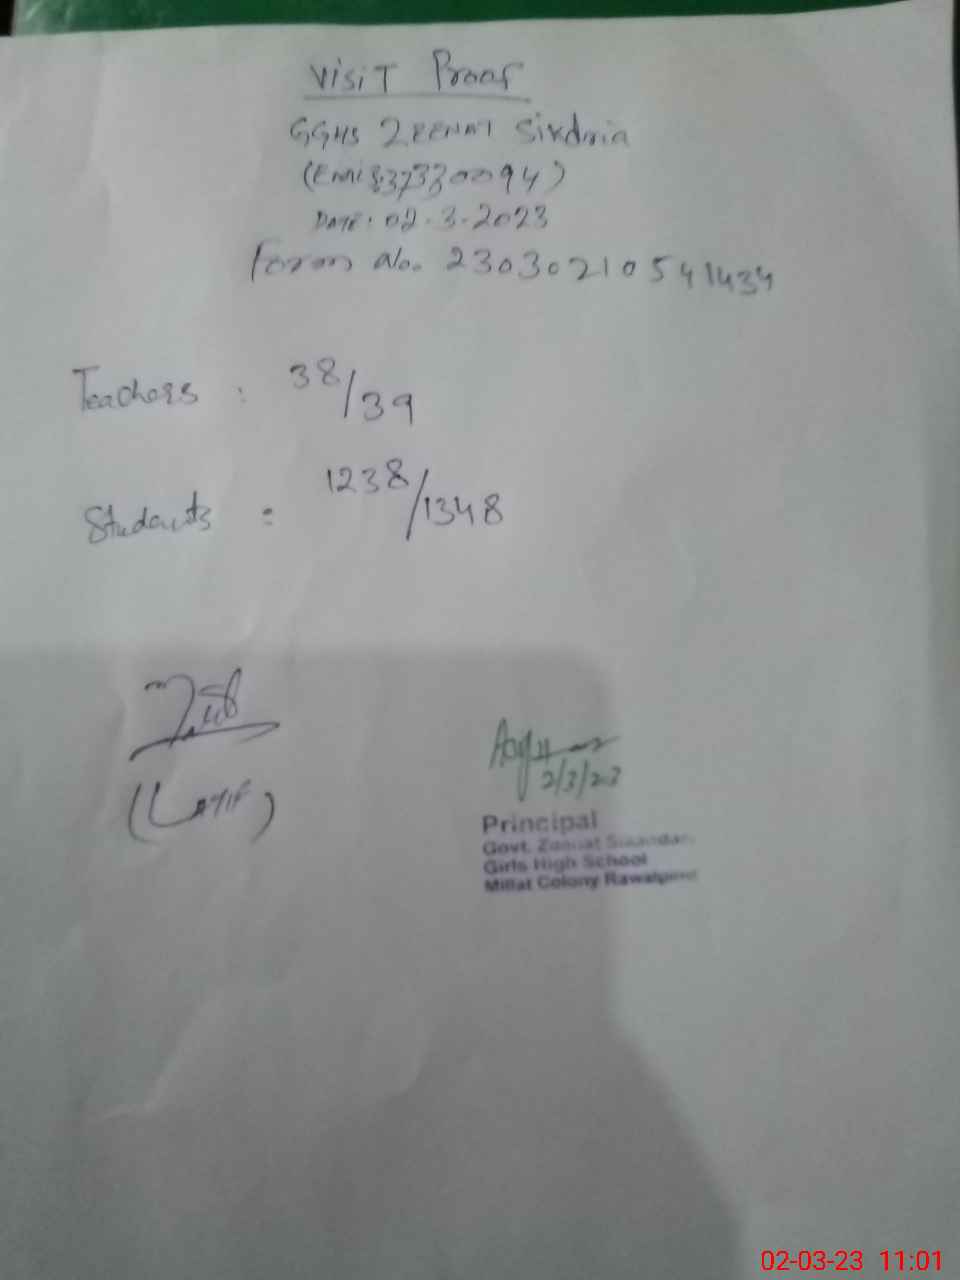 Visit Proof
GGHS Zeenat Sikdria
(Emis 37330094)
Date: 02.3.2023
Form No. 23030210541434
Teachers : 38/39
Students : 1238/1348
(Latif)
2/3/23
Principal
Govt. Zeenat Sikandari
Girls High School
Millat Colony Rawalpindi
02-03-23 11:01